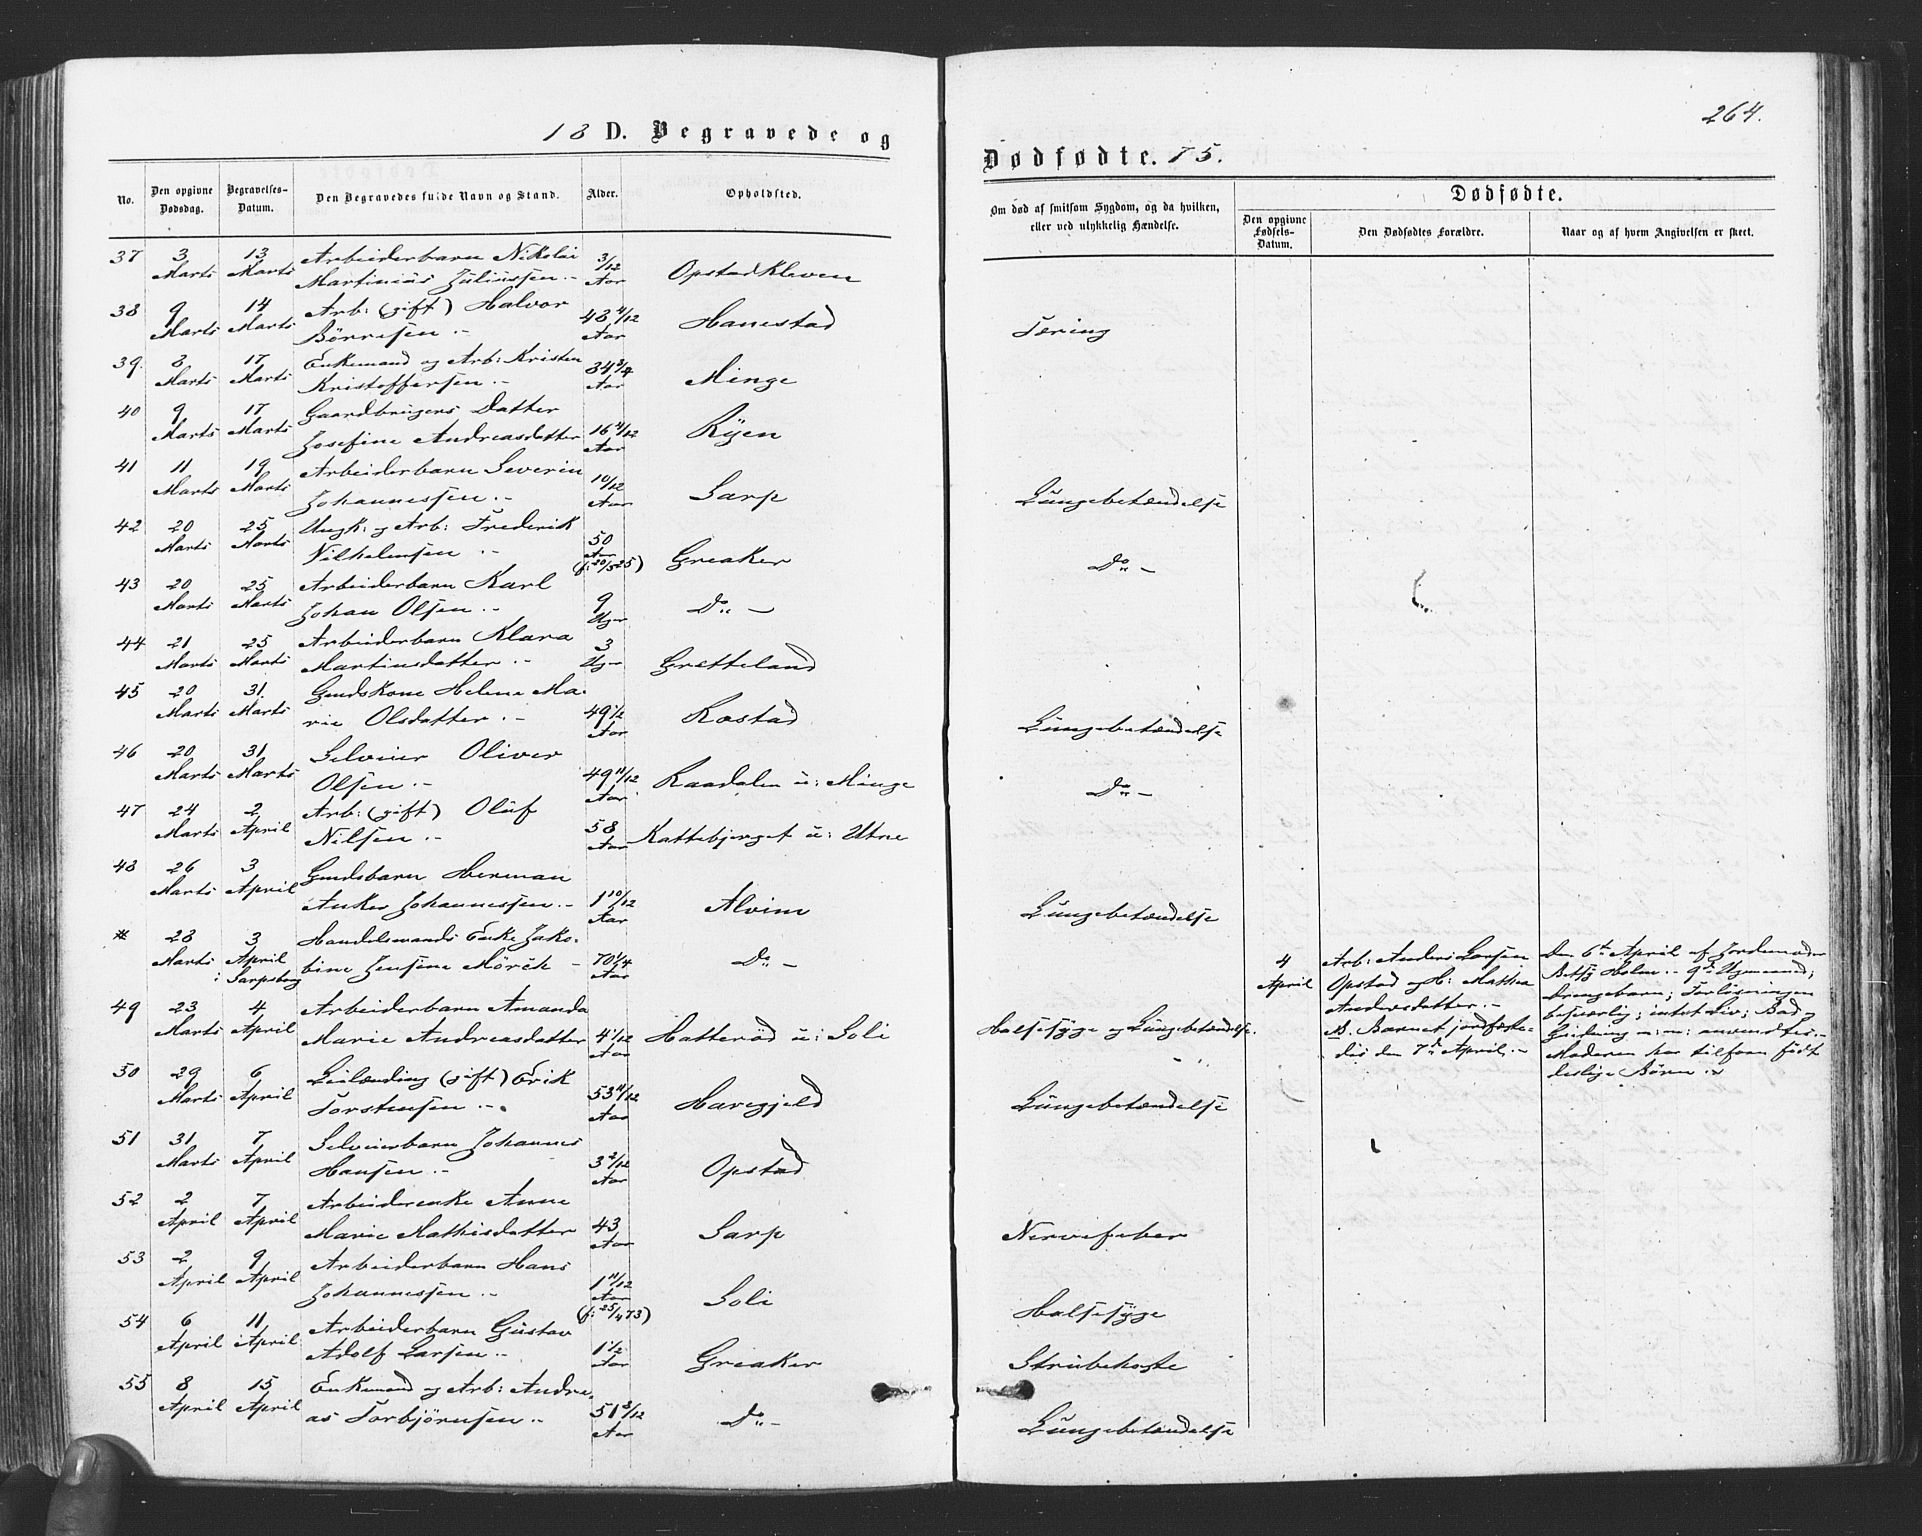 264.
18 D. Begravede og
Dødfødte. 75.
No.
Den opgivne Dødsdag.
Begravelses-Datum.
Den Begravedes fulde Navn og Stand.
Alder.
Opholdsted.
Om død af smitsom Sygdom, og da hvilken, eller ved ulykkelig Hændelse.
Dødfødte.
Den opgivne Fødsels-Datum.
Den Dødfødtes Forældre.
Naar og af hvem Angivelsen er skeet.
37 3 Marts 13 Marts Arbeiderbarn Nikolai
Martinius Juliussen .- 3/12 Aar Opstadkleven
38 9 Marts 14 Marts Arb: (gift) Halvor
Børresen .- 48 4/12 Aar Hanestad Tæring
39. 8 Marts 17 Marts Enkemand og Arb: Kristen
Kristoffersen .- 34 3/4 Aar Minge
40 9 Marts 17 Marts Gaardbrugers Datter
Josefine Andreasdatter 16 4/12 Aar Ryen
41 11 Marts 19 Marts Arbeiderbarn Severin
Johannessen .- 10/12 Aar Sarp Lungebetændelse
42 20 Marts 25 Marts Ungk: og Arb: Frederik
Vilhelmsen .- 50 Aar (f: 20/5 25) Greaker Do -
43 20 Marts 25 Marts Arbeiderbarn Karl
Johan Olsen .- 9 Uger Do -
44 21 Marts 25 Marts Arbeiderbarn Klara
Martinsdatter .- 3 Uger Gretteland
45 20 Marts 31. Marts Gmdskone Helene Ma-
rie Olsdatter .- 49 1/2 Aar Rostad Lungebetændelse
46 20 Marts 31. Marts Selveier Oliver
Olsen .- 49 11/12 Aar Raadalen u: Minge Do -
47 24 Marts 2 April Arb: (gift) Oluf
Nilsen .- 58 Aar Kattebjerget u: Utne
48 26 Marts 3 April Gmdsbarn Herman
Anker Johannessen .- 1 10/12 Aar Alvim Lungebetændelse
* 28 Marts 3 April : Sarpsborg Handelsmands Enke Jako-
bine Jensine Mörch - 70 1/4 Aar Do -
49 23 Marts 4 April Arbeiderbarn Amanda
Marie Andreasdatter 4 1/12 Aar Hatterød u: Soli Halssyge og Lungebetændelse.
50 29 Marts 6 April Leilænding (gift) Erik
Torstensen .- 53 11/12 Aar Haregjeld Lungebetændelse
51 31 Marts 7 April Selveierbarn Johannes
Hansen .- 3 2/12 Aar Opstad
52 2 April 7 April Arbeiderenke Anne
Marie Mathisdatter 43 Aar Sarp Nervefeber
53 2 April 9 April Arbeiderbarn Hans
Johannessen .- 1 11/12 Aar (f: 25/4 73) Soli Halssyge
54 6 April 11 April Arbeiderbarn Gustav
Adolf Larsen .- 1 1/2 Aar Greaker Strubehoste
55 8 April 15 April Enkemand og Arb: Andre-
as Torbjørnsen .- 51 3/12 Aar Do - Lungebetændelse
4 April
Arb: Anders Larsen
Opstad og H: Mathea
Andersdatter .-
NB. Barnet jordfæste-
des den 7de April .-
Den 6te April af Jordemoder
Betsy Holm .- 9de Ugemand;
Drengebarn; Forløsningen
besværlig; intet Liv; Bad,
Gnidning m: m: anvendtes.
Moderen har tilforn født
deslige Børn .-